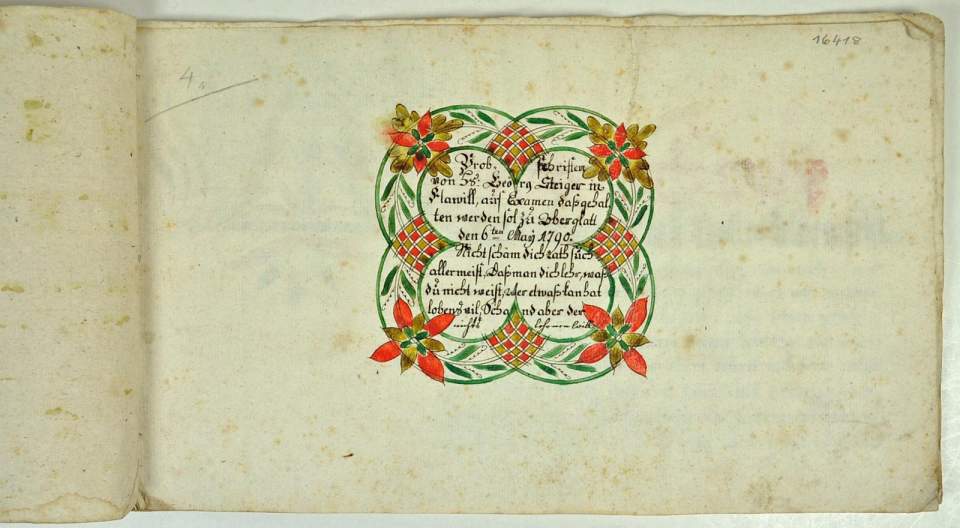 16418
4.
Prob. schriften
von Hs: Georg Steiger in
Flawill, aufs Examen daß gehal
ten werden sol zu Oberglatt
den 6ten Maÿ 1790.
Nicht schäm dich rath such
allermeist, Daß man dich lehr, waß
du nicht weist, wer etwaß kan hat
lobens vil, Scha nd aber der
nichts lehrnen will